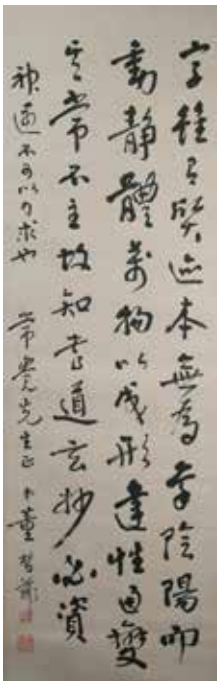 字雖有質迹本無為稟陰陽而
動靜體萬物以成形達性通變
其常不主故知書道玄妙必資
神遇不可以力求也 常 先生正 董